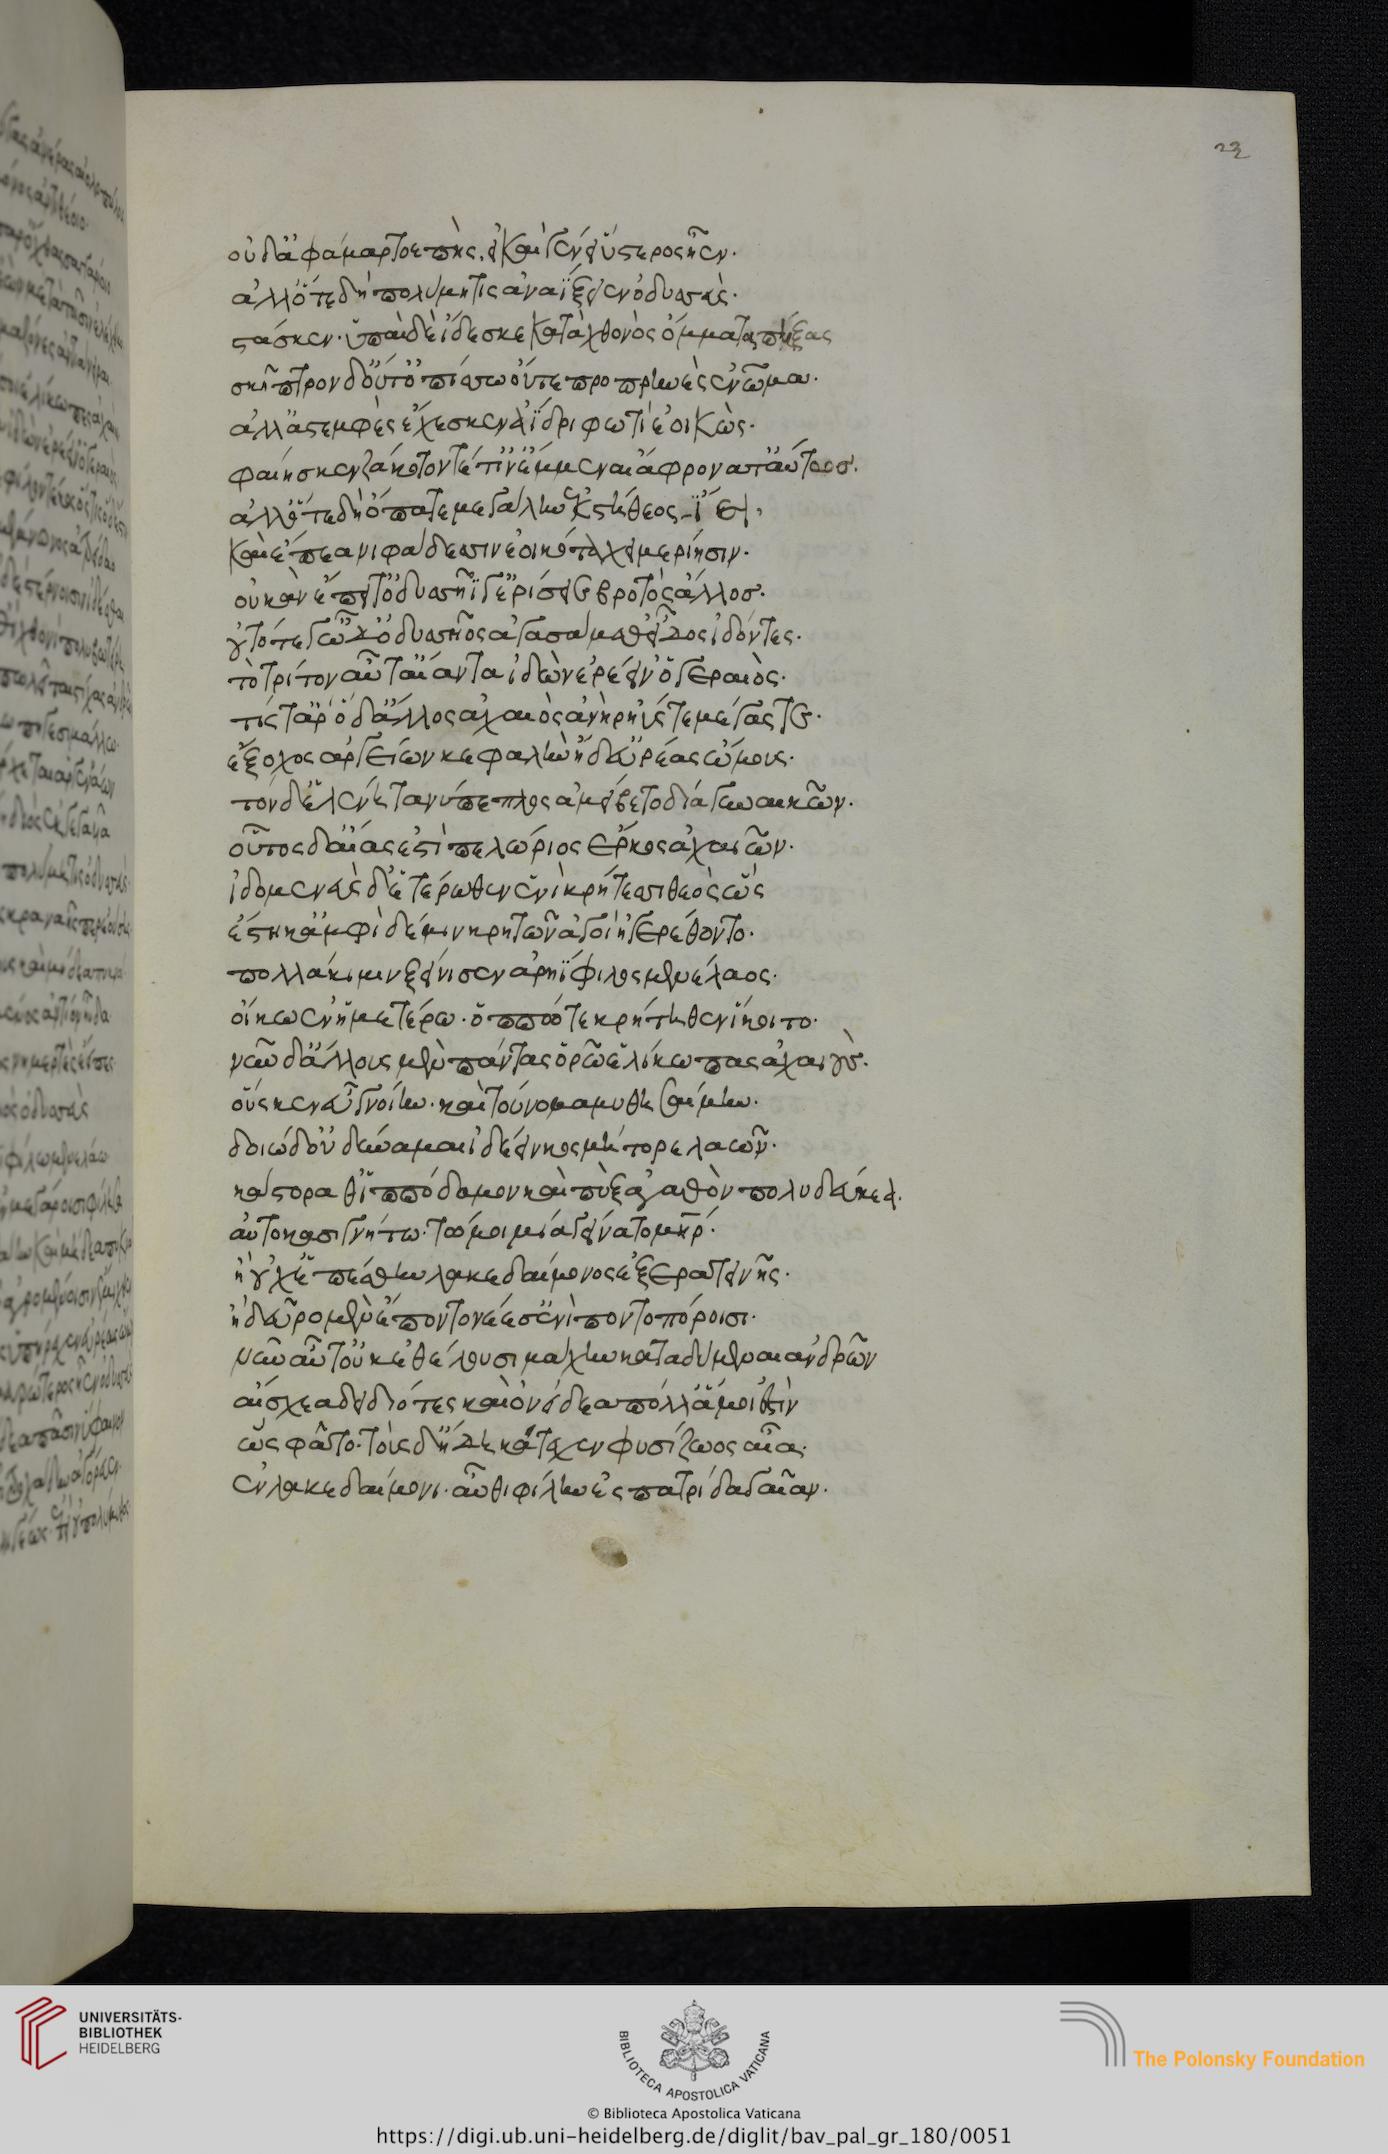 23
οὐδ' ἀφαμαρτοεπής. εἰ καὶ γένει ὕστερος ἦεν.
ἀλλ' ὅτε δὴ πολύμητις ἀναΐξειεν ὀδυσσεύς.
στάσκεν. ὑπαὶ δὲ ἴδεσκε κατὰ χθονὸς ὄμματα πήξας
σκῆπτρον δ' οὔτ' ὀπίσω οὔτε προπρηνὲς ἐνώμα.
ἀλλ' ἀστεμφὲς ἔχεσκεν ἀΐδρι φωτὶ ἐοικώς.
φαίης κεν ζάκοτόν τέ τιν' ἔμμεναι ἄφρονα τ' αὔτως.
ἀλλ' ὅτε δὴ ὄπα τε μεγάλην ἐκ στήθεος ἵει.
καὶ ἔπεα νιφάδεσσιν ἐοικότα χειμερίησιν.
οὐκ ἂν ἔπειτ' ὀδυσσῆϊ γ' ἐρίσσειε βροτὸς ἄλλος.
οὐ τότε γ' ὧδ' ὀδυσσῆος ἀγασσάμεθ' εἶδος ἰδόντες.
τὸ τρίτον αὖτ' αἴαντα ἰδὼν ἐρέειν' ὁ γεραιός.
τίς τ' ἄρ' ὅδ' ἄλλος ἀχαιὸς ἀνὴρ ἠΰς τε μέγας τε.
ἔξοχος ἀργείων κεφαλὴν ἠδ' εὐρέας ὤμους.
τὸν δ' ἑλένη τανύπεπλος ἀμείβετο δῖα γυναικῶν.
οὗτος δ' αἴας ἐστὶ πελώριος ἕρκος ἀχαιῶν.
ἰδομενεὺς δ' ἑτέρωθεν ἐνὶ κρήτεσσι θεὸς ὣς
ἕστηκ' ἀμφὶ δέ μιν κρητῶν ἀγοὶ ἠγερέθονται.
πολλάκι μιν ξείνισεν ἀρηΐφιλος μενέλαος.
οἴκω ἐν ἡμετέρω. ὁππότε κρήτηθεν ἵκοιτο.
νῦν δ' ἄλλους μὲν πάντας ὁρῶ ἑλίκωπας ἀχαιούς.
οὕς κεν εὖ γνοίην. καὶ τοὔνομα μυθησαίμην.
δοιὼ δ' οὐ δύναμαι ἰδέειν κοσμήτορε λαῶν.
κάστορά θ' ἱππόδαμον καὶ πὺξ ἀγαθὸν πολυδεύκεα.
αὐτοκασιγνήτω. τώ μοι μία γείνατο μήτηρ.
ἢ οὐχ ἑπέσθην λακεδαίμονος ἐξ ἐρατεινῆς.
ἢ δεῦρο μὲν ἕποντο νέεσσ' ἐνὶ ποντοπόροισι.
νῦν αὖτ' οὐκ ἐθέλουσι μάχην καταδύμεναι ἀνδρῶν
αἴσχεα δειδιότες καὶ ὀνείδεα πόλλ' ἅ μοι ἐστὶν
ὣς φάτο. τοὺς δ' ἤδη κάτεχεν φυσίζωος αἶα.
ἐν λακεδαίμονι. αὖθι φίλην ἐς πατρίδα γαῖαν.
UNIVERSITÄTS-
BIBLIOTHEK
HEIDELBERG
BIBLIOTECA APOSTOLICA VATICANA
The Polonsky Foundation
© Biblioteca Apostolica Vaticana
https://digi.ub.uni-heidelberg.de/diglit/bav_pal_gr_180/0051